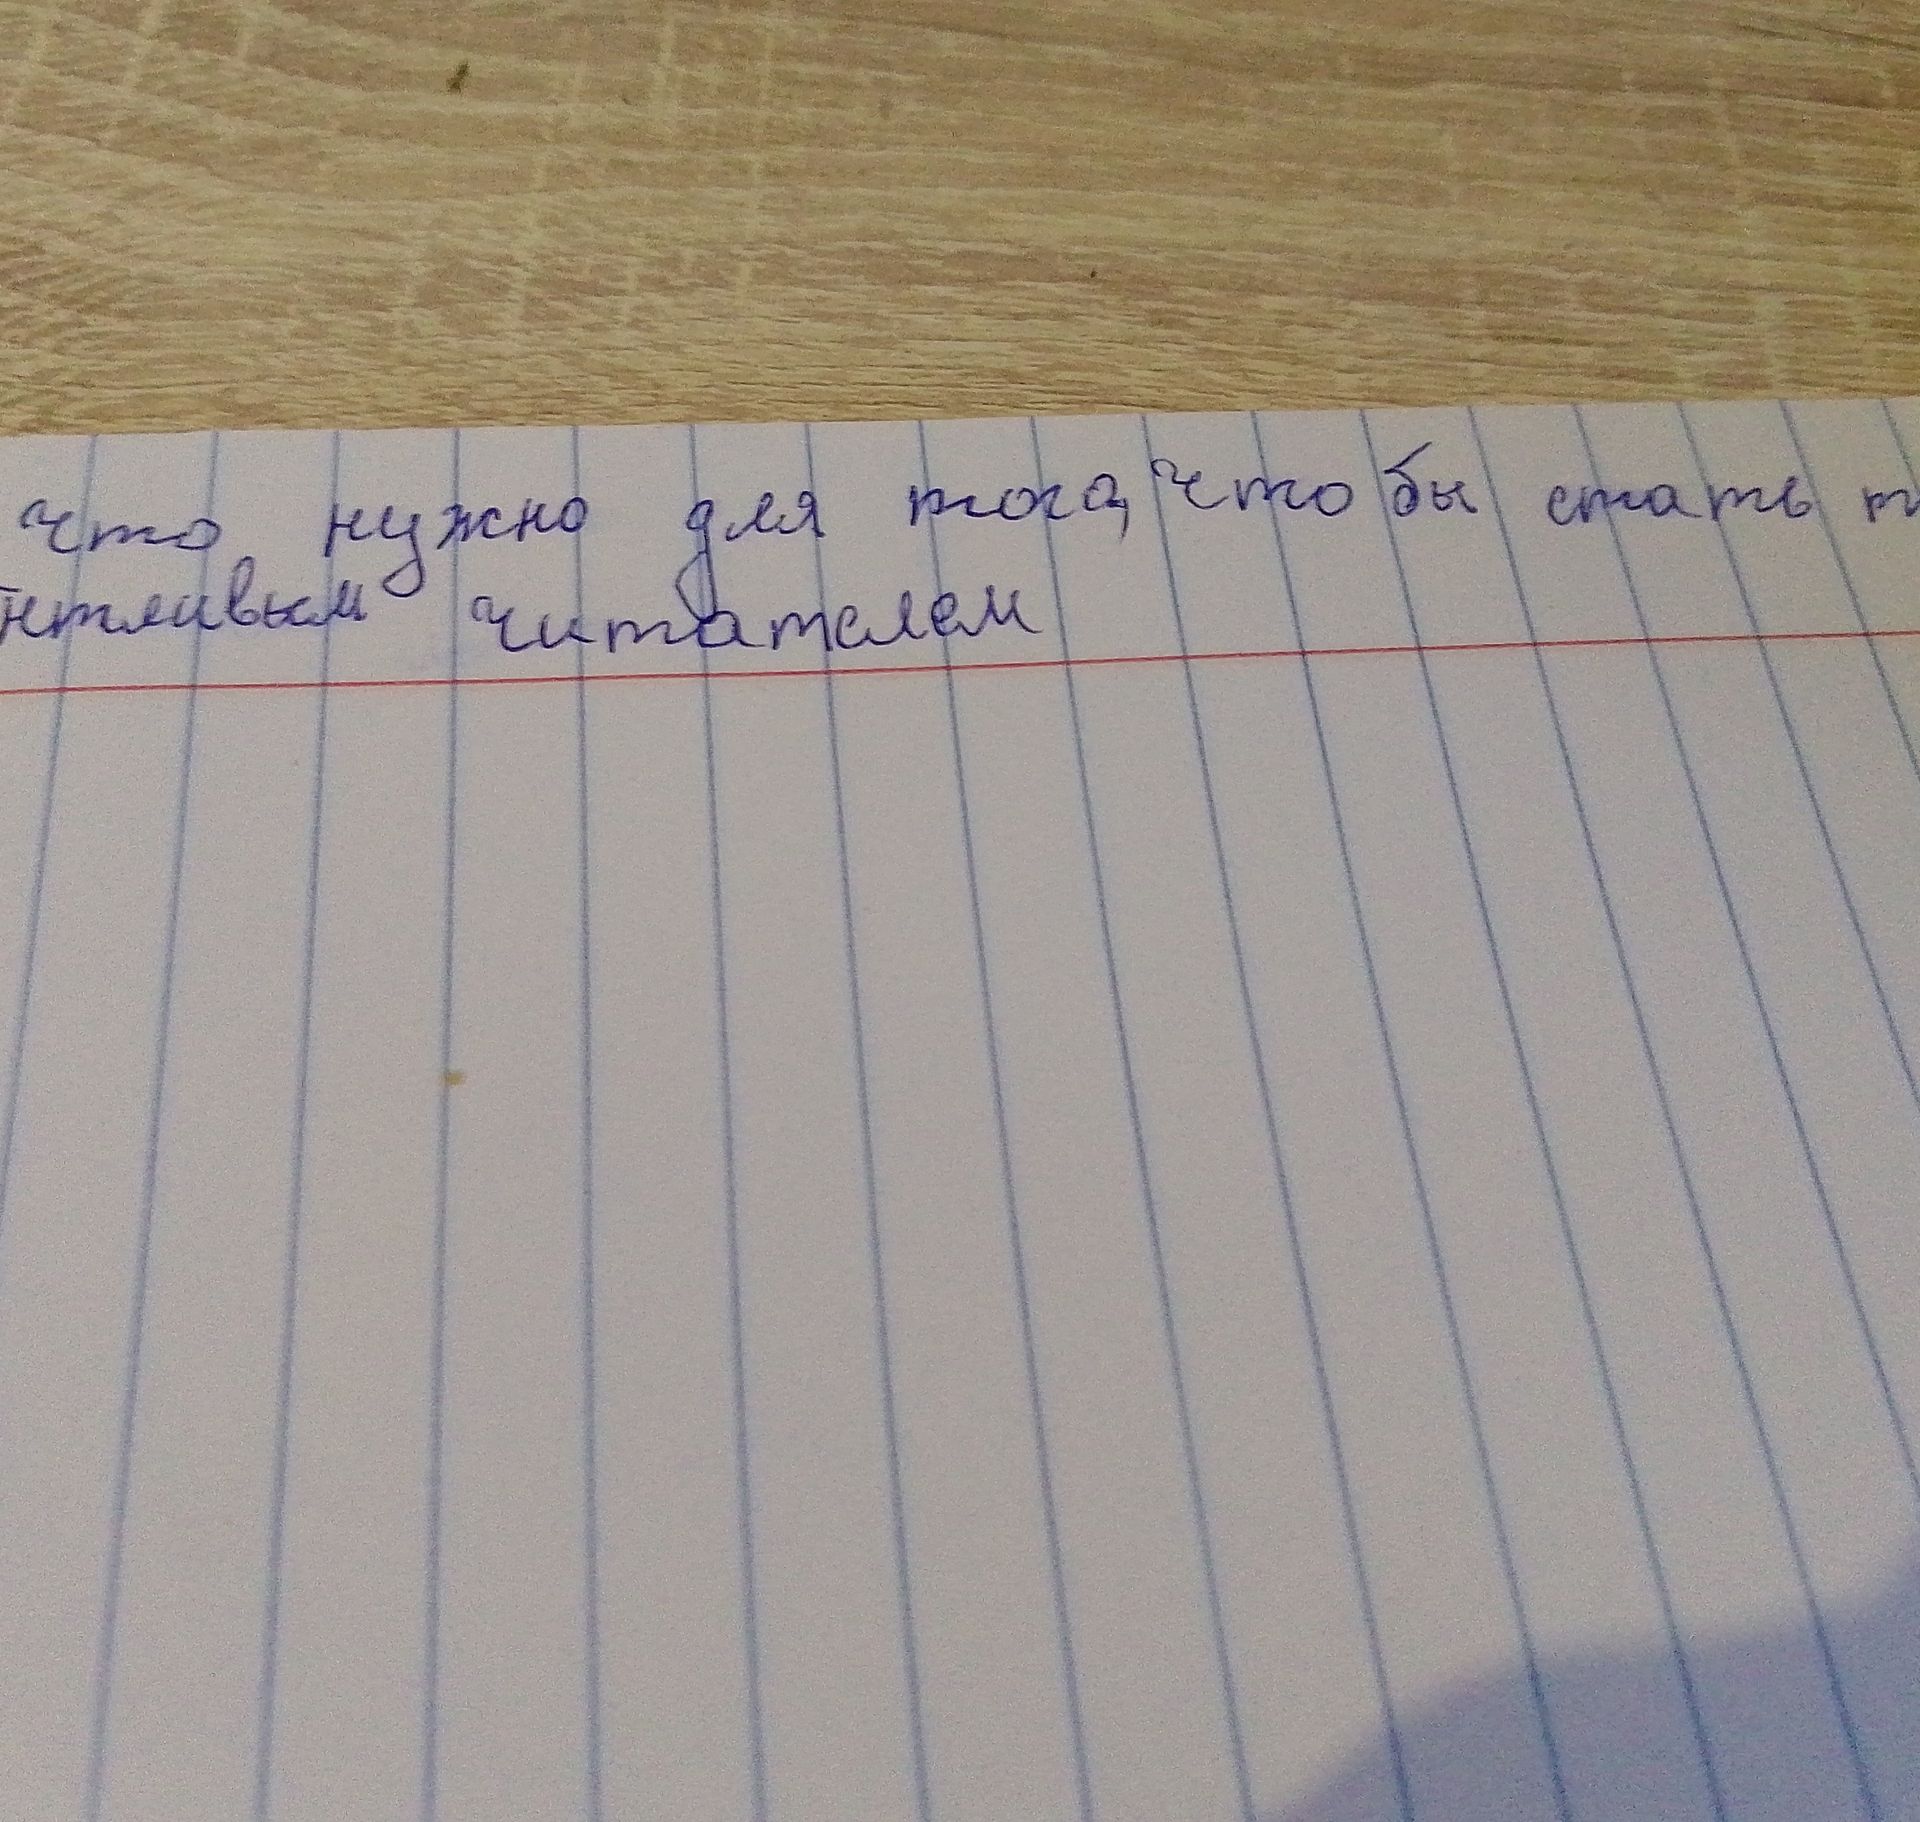 что нужно для того, чтобы стать т
нтливым читателем